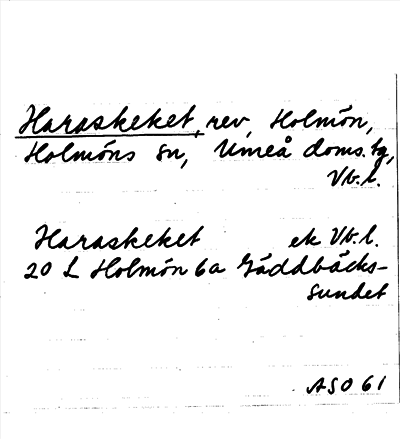 Haraskeket, rev, Holmön,
Holmöns sn, Umeå doms.tg,
Vb.l.
Haraskeket ek Vb.l.
20 L Holmön 6a Gäddbäcks-
sundet
ASO 61